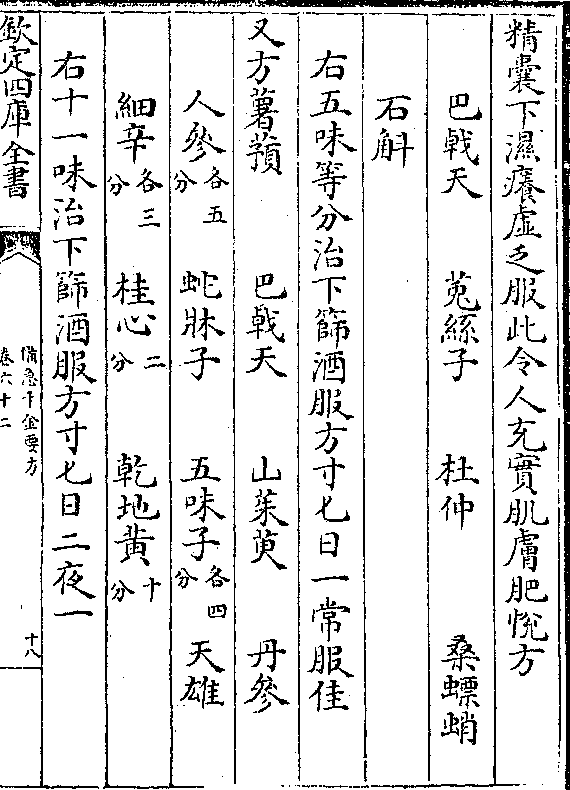 精囊下濕癢虛乏服此令人充實肌膚肥恱方
巴㦸天 菟絲子 杜仲 桑螵蛸
石斛
右五味等分治下篩酒服方寸匕日一常服佳
又方薯蕷 巴㦸天 山茱萸 丹參
人參各五分 蛇牀子 五味子各四分 天雄
細辛各三分 桂心二分 乾地黄十分
右十一味治下篩酒服方寸匕日二夜一
欽定四庫全書
備急千金要方
卷六十二
十八